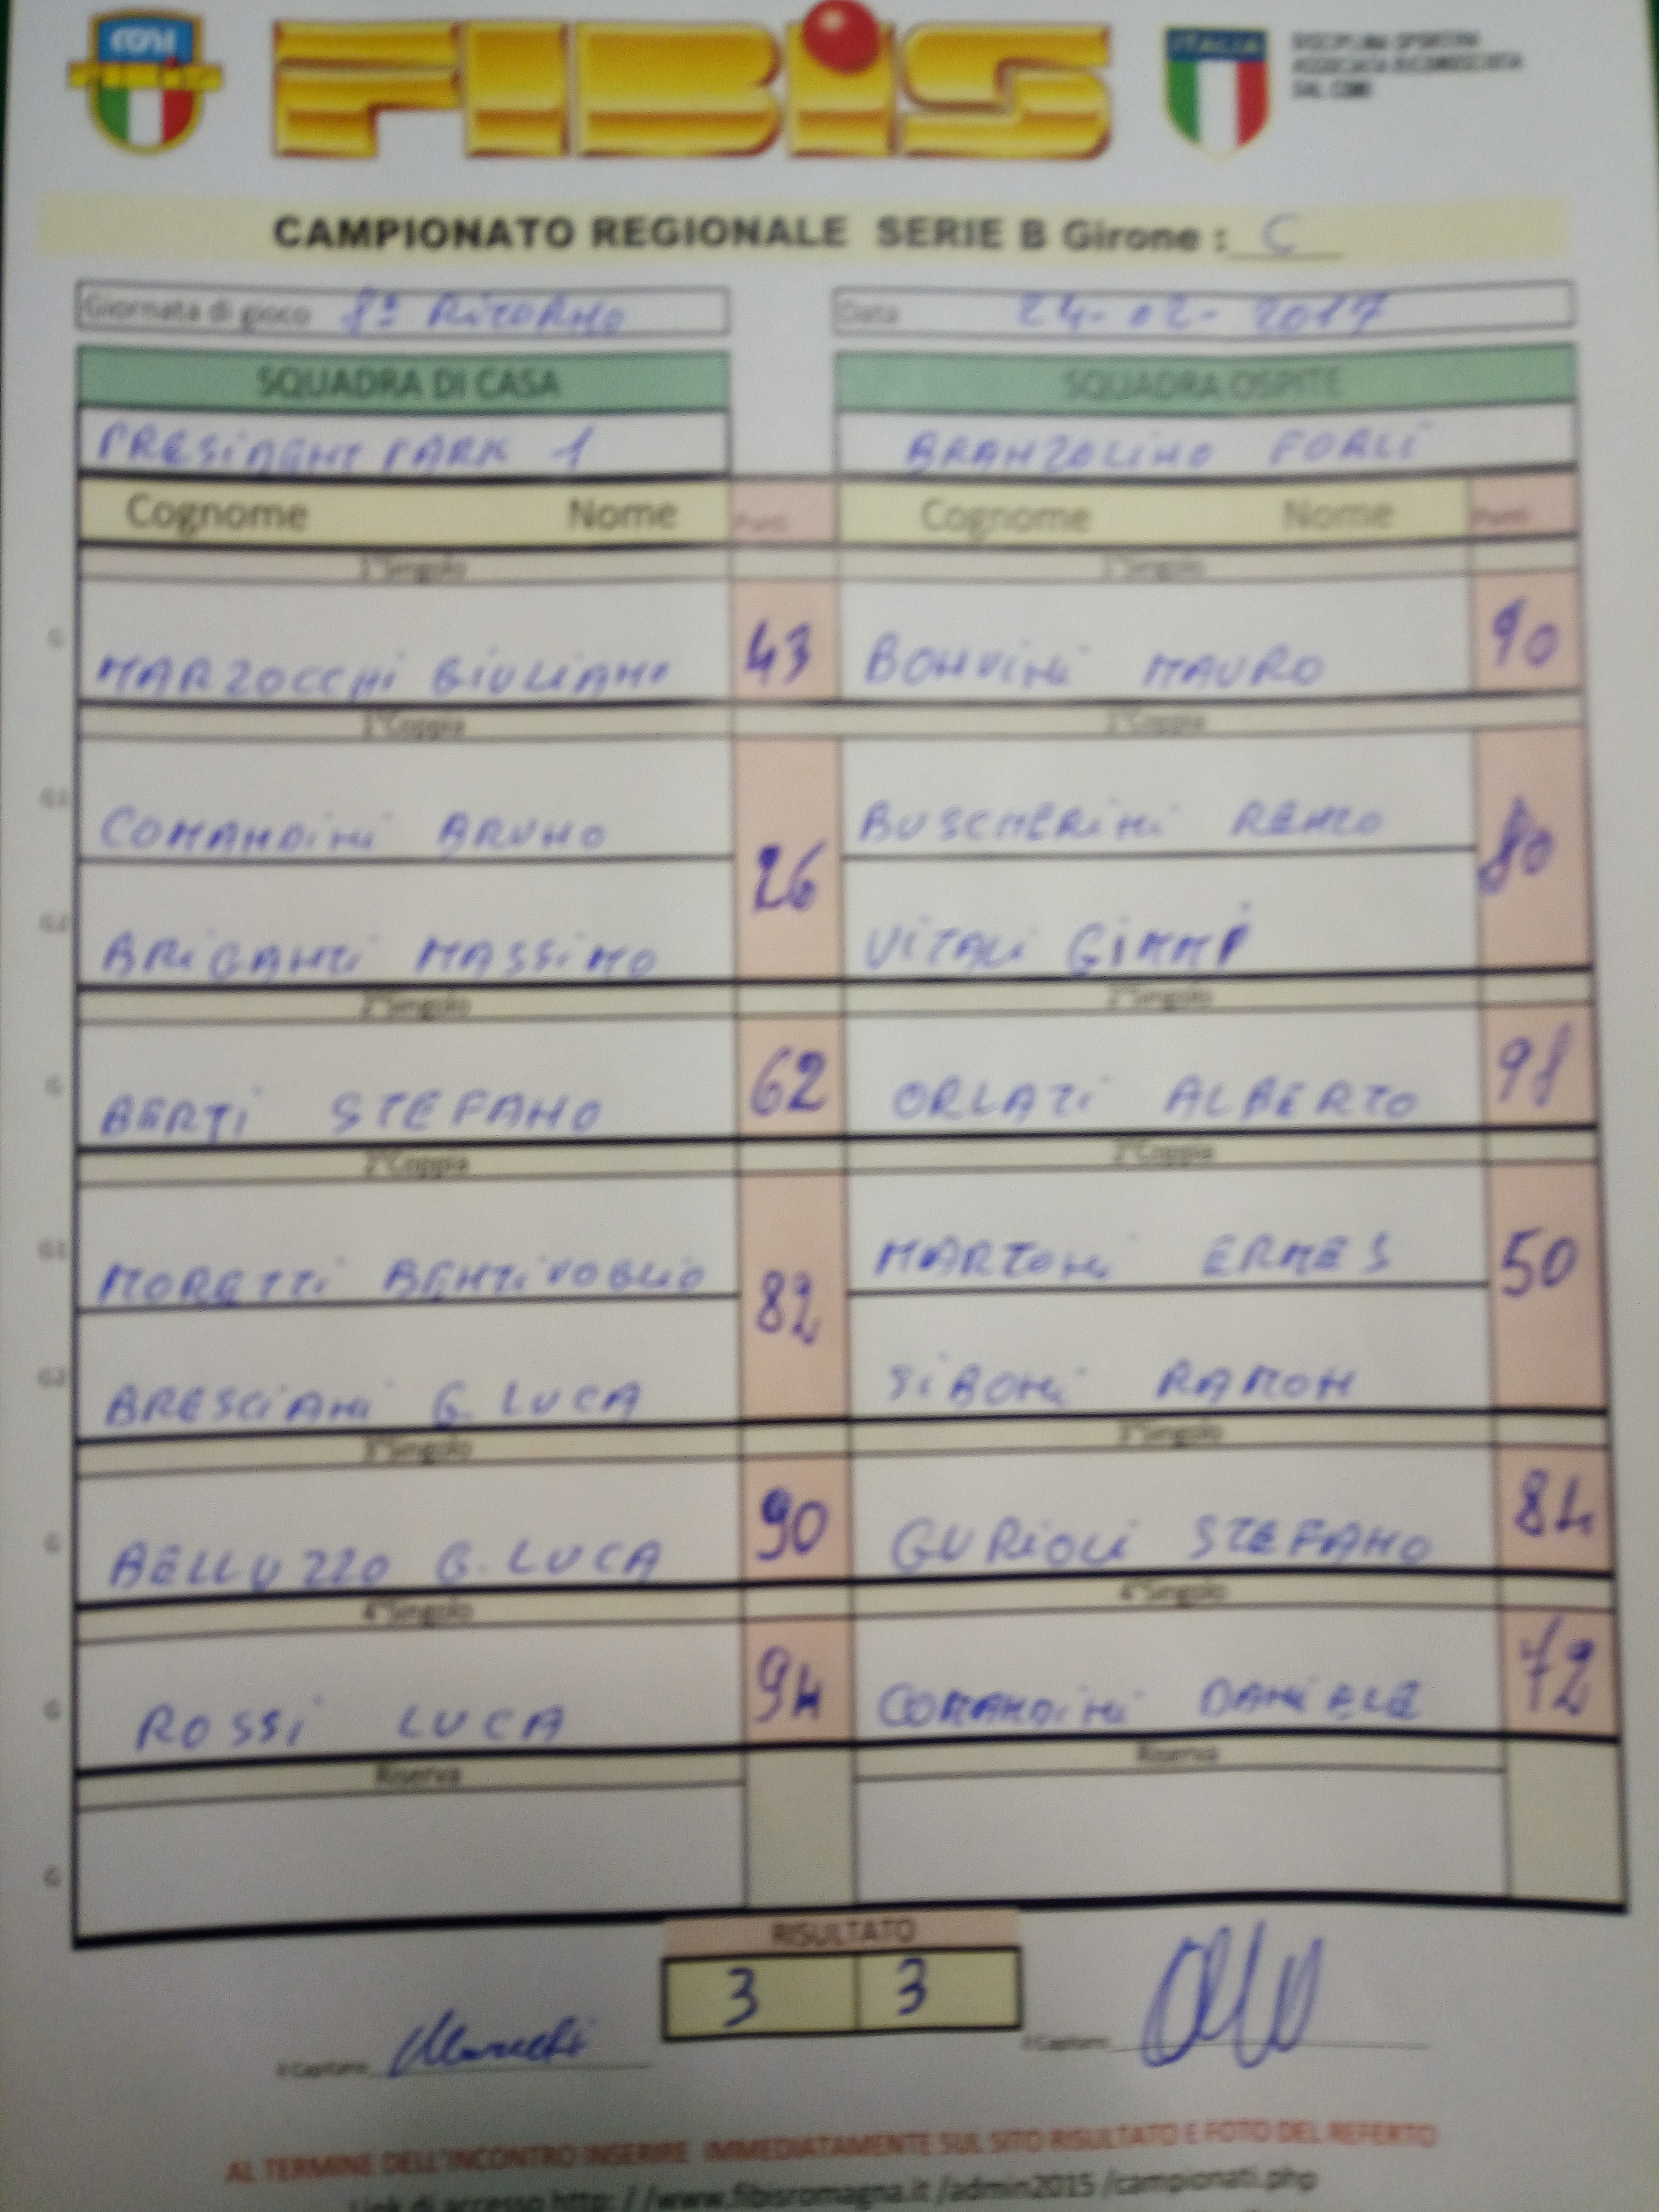 CONI
FIBIS
ITALIA
DISCIPLINA SPORTIVA
ASSOCIATA RICONOSCIUTA
DAL CONI
CAMPIONATO REGIONALE SERIE B Girone : C
Giornata di gioco 8ª RITORNO Data 24-02-2017
SQUADRA DI CASA SQUADRA OSPITE
PRESIDENT PARK 1 BRANZOLINO FORLI
Cognome Nome Punti Cognome Nome Punti
1°Singolo 1°Singolo
G MARZOCCHI GIULIANO 43 BONVINI MAURO 90
1°Coppia 1°Coppia
G1 COMANDINI BRUNO 26 BUSCHERINI RENZO 80
G2 BRIGANTI MASSIMO VITALI GIANNI
2°Singolo 2°Singolo
G BERTI STEFANO 62 ORLATI ALBERTO 98
2°Coppia 2°Coppia
G1 MORETTI BENTIVOGLIO 82 MARTONI ERMES 50
G2 BRESCIANI G. LUCA SIBONI RAMON
3°Singolo 3°Singolo
G BELLUZZO G. LUCA 90 GURIOLI STEFANO 84
4°Singolo 4°Singolo
G ROSSI LUCA 94 COMANDINI DANIELE 72
Riserva Riserva
G
RISULTATO
3 3
Il Capitano Il Capitano
AL TERMINE DELL'INCONTRO INSERIRE IMMEDIATAMENTE SUL SITO RISULTATO E FOTO DEL REFERTO
Link di accesso http: / /www.fibisromagna.it /admin2015 /campionati.php